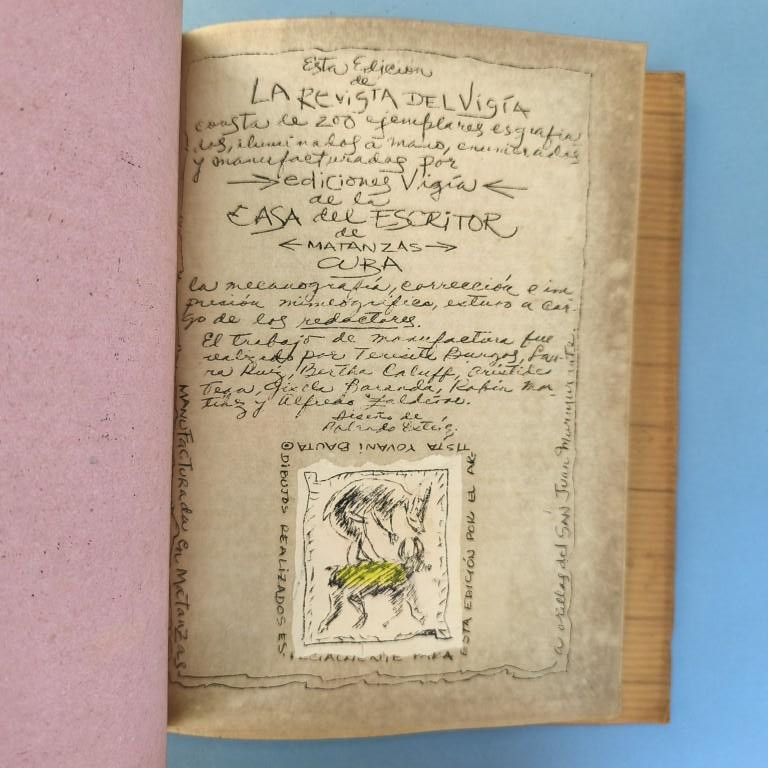 Esta Edicion
de
LA REVISTA DEL VIGÍA
consta de 200 ejemplares esgrafia
dos, iluminados a mano, enumerados
y manufacturados por
ediciones Vigía
de la
CASA del ESCRITOR
de
MATANZAS
CUBA
la mecanografía, corrección e im
presión mimeográfica, estuvo a car-
go de los redactores.
El trabajo de manufactura fue
realizado por Teresita Burgos, Lau-
ra Ruiz, Bertha Caluff, Arístides
Vega, Gisela Baranda, Rabin Mar-
tínez y Alfredo Zaldívar.
Diseño de
Rolando Estévez.
DIBUJOS REALIZADOS ES-
PECIALMENTE PARA
ESTA EDICIÓN POR EL AR-
TISTA YOVANI BAUTA
MANUFACTURADA EN MATANZAS
a orillas del SAN JUAN